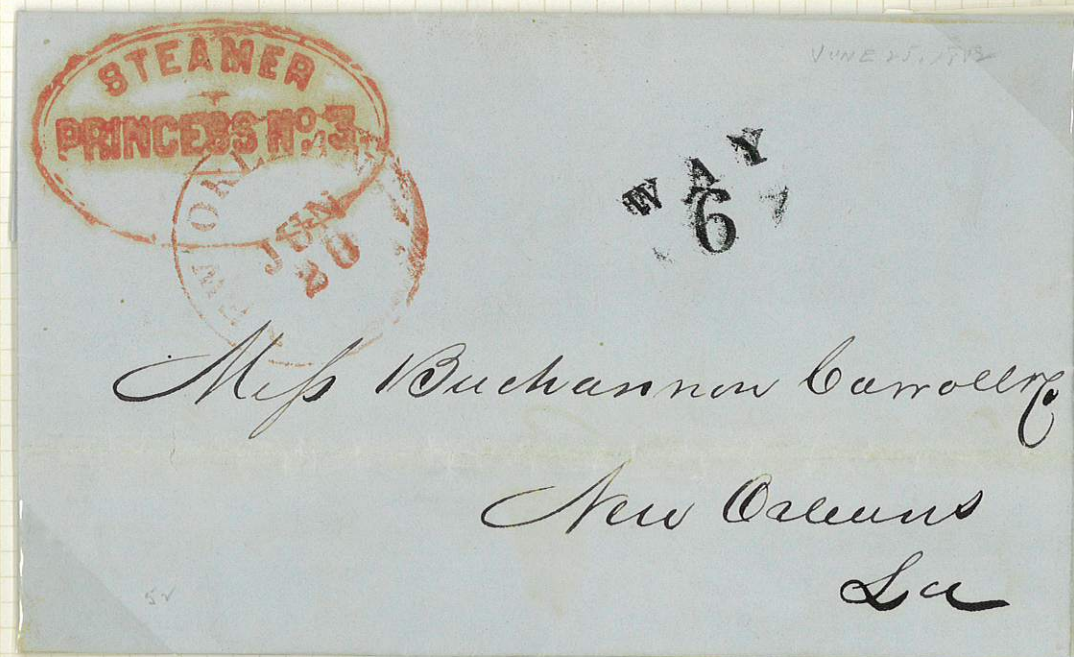 STEAMER
PRINCESS No. 3
NEW ORLEANS
JUN
20
JUNE 25, 
WAY
6
Mess Buchannon Carroll & Co
New Orleans
La